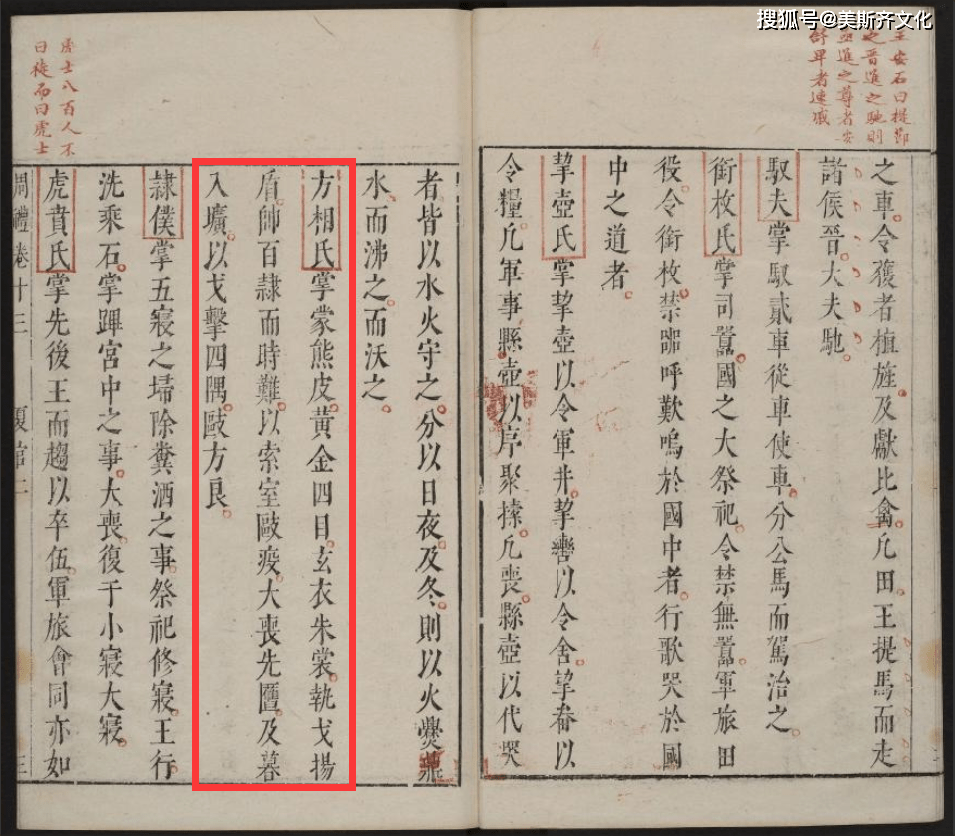 搜狐号@美斯齐文化
王安石曰提節
之晉進之馳則
亟進之尊者安
舒卑者速戚
之車令獲者植旌及獻比禽凡田王提馬而走
諸侯晉大夫馳
馭夫掌馭貳車從車使車分公馬而駕治之
銜枚氏掌司囂國之大祭祀令禁無囂軍旅田
役令銜枚禁嘂呼歎嗚於國中者行歌哭於國
中之道者
挈壺氏掌挈壺以令軍井挈轡以令舍挈畚以
令糧凡軍事縣壺以序聚㯓凡喪縣壺以代哭
者皆以水火守之分以日夜及冬則以火爨鼎
水而沸之而沃之
方相氏掌蒙熊皮黃金四目玄衣朱裳執戈揚
盾帥百隸而時難以索室毆疫大喪先匶及墓
入壙以戈擊四隅毆方良
隸僕掌五寢之埽除糞洒之事祭祀修寢王行
洗乘石掌蹕宮中之事大喪復于小寢大寢
虎賁氏掌先後王而趨以卒伍軍旅會同亦如
虎士八百人不
曰徒而曰虎士
周禮卷十三 夏官二 三